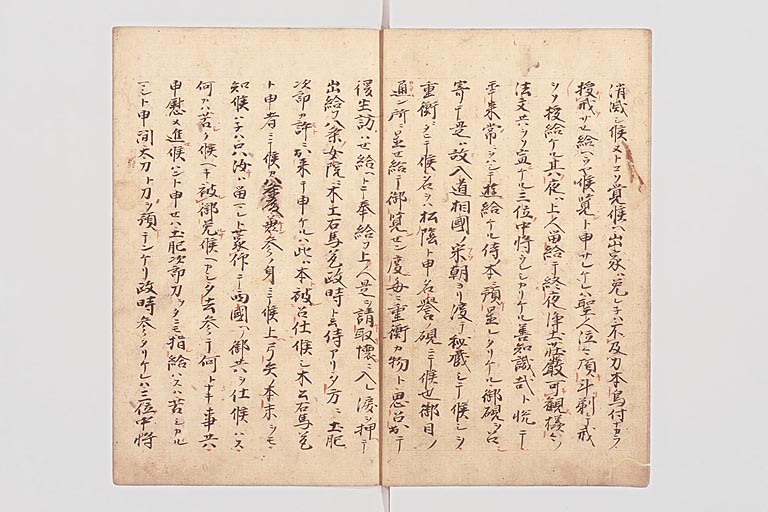 消滅シ候ヌトコソ覚候ヘ出家ハ免シナケレハ不及力本鳥付ナカラ
授戒サセ給ヘヤ候覧ト申サレケレハ聖人位々頂斗剃テ戒
ヲソ授給ケル其夜ハ上人留給テ終夜浄土荘厳可観様々ノ
法文共ヲソ宣ケル三位中将ウレシカリケル善知識哉ト悦テ
年来常ニハシテ遊給ケル侍ノ本預置レタリケル御硯ヲ召
寄テ是ハ故入道相國ノ宋朝ヨリ渡テ秘蔵シテ候シヲ
重衡ニタヒテ候名ヲハ松陰ト申名誉ノ硯ニテ候也御目ノ
通ン所ニ置セ給テ御覧セン度毎ニ重衡カ物ト思召出テ
後生訪ハセ給ヘトテ奉給ヲ上人是ヲ請取懐ニ入レ涙ヲ押テ
出給フ八条女院ニ木工右馬允政時ト云侍アリ夕方ニ土肥
次郎カ許ニ出来テ申ケルハ此ハ本被召仕候シ木工右馬允
ト申者ニテ候カ八条兼参ノ身ニテ候上弓矢ノ本末ヲモ
知候ハネハ只汝ハ留レト上家仰ニテ西國ヘノ御共ヲ仕候ハス
何カハ苦ク候ヘキ被御免候ヘカシタ去参テ何トナキ事共
申慰メ進候ハント申セハ土肥次郎刀ヲタニモ指給ハスハ苦シカル
マシト申間太刀ト刀ヲ預テンケリ政時参タリケレハ三位中将